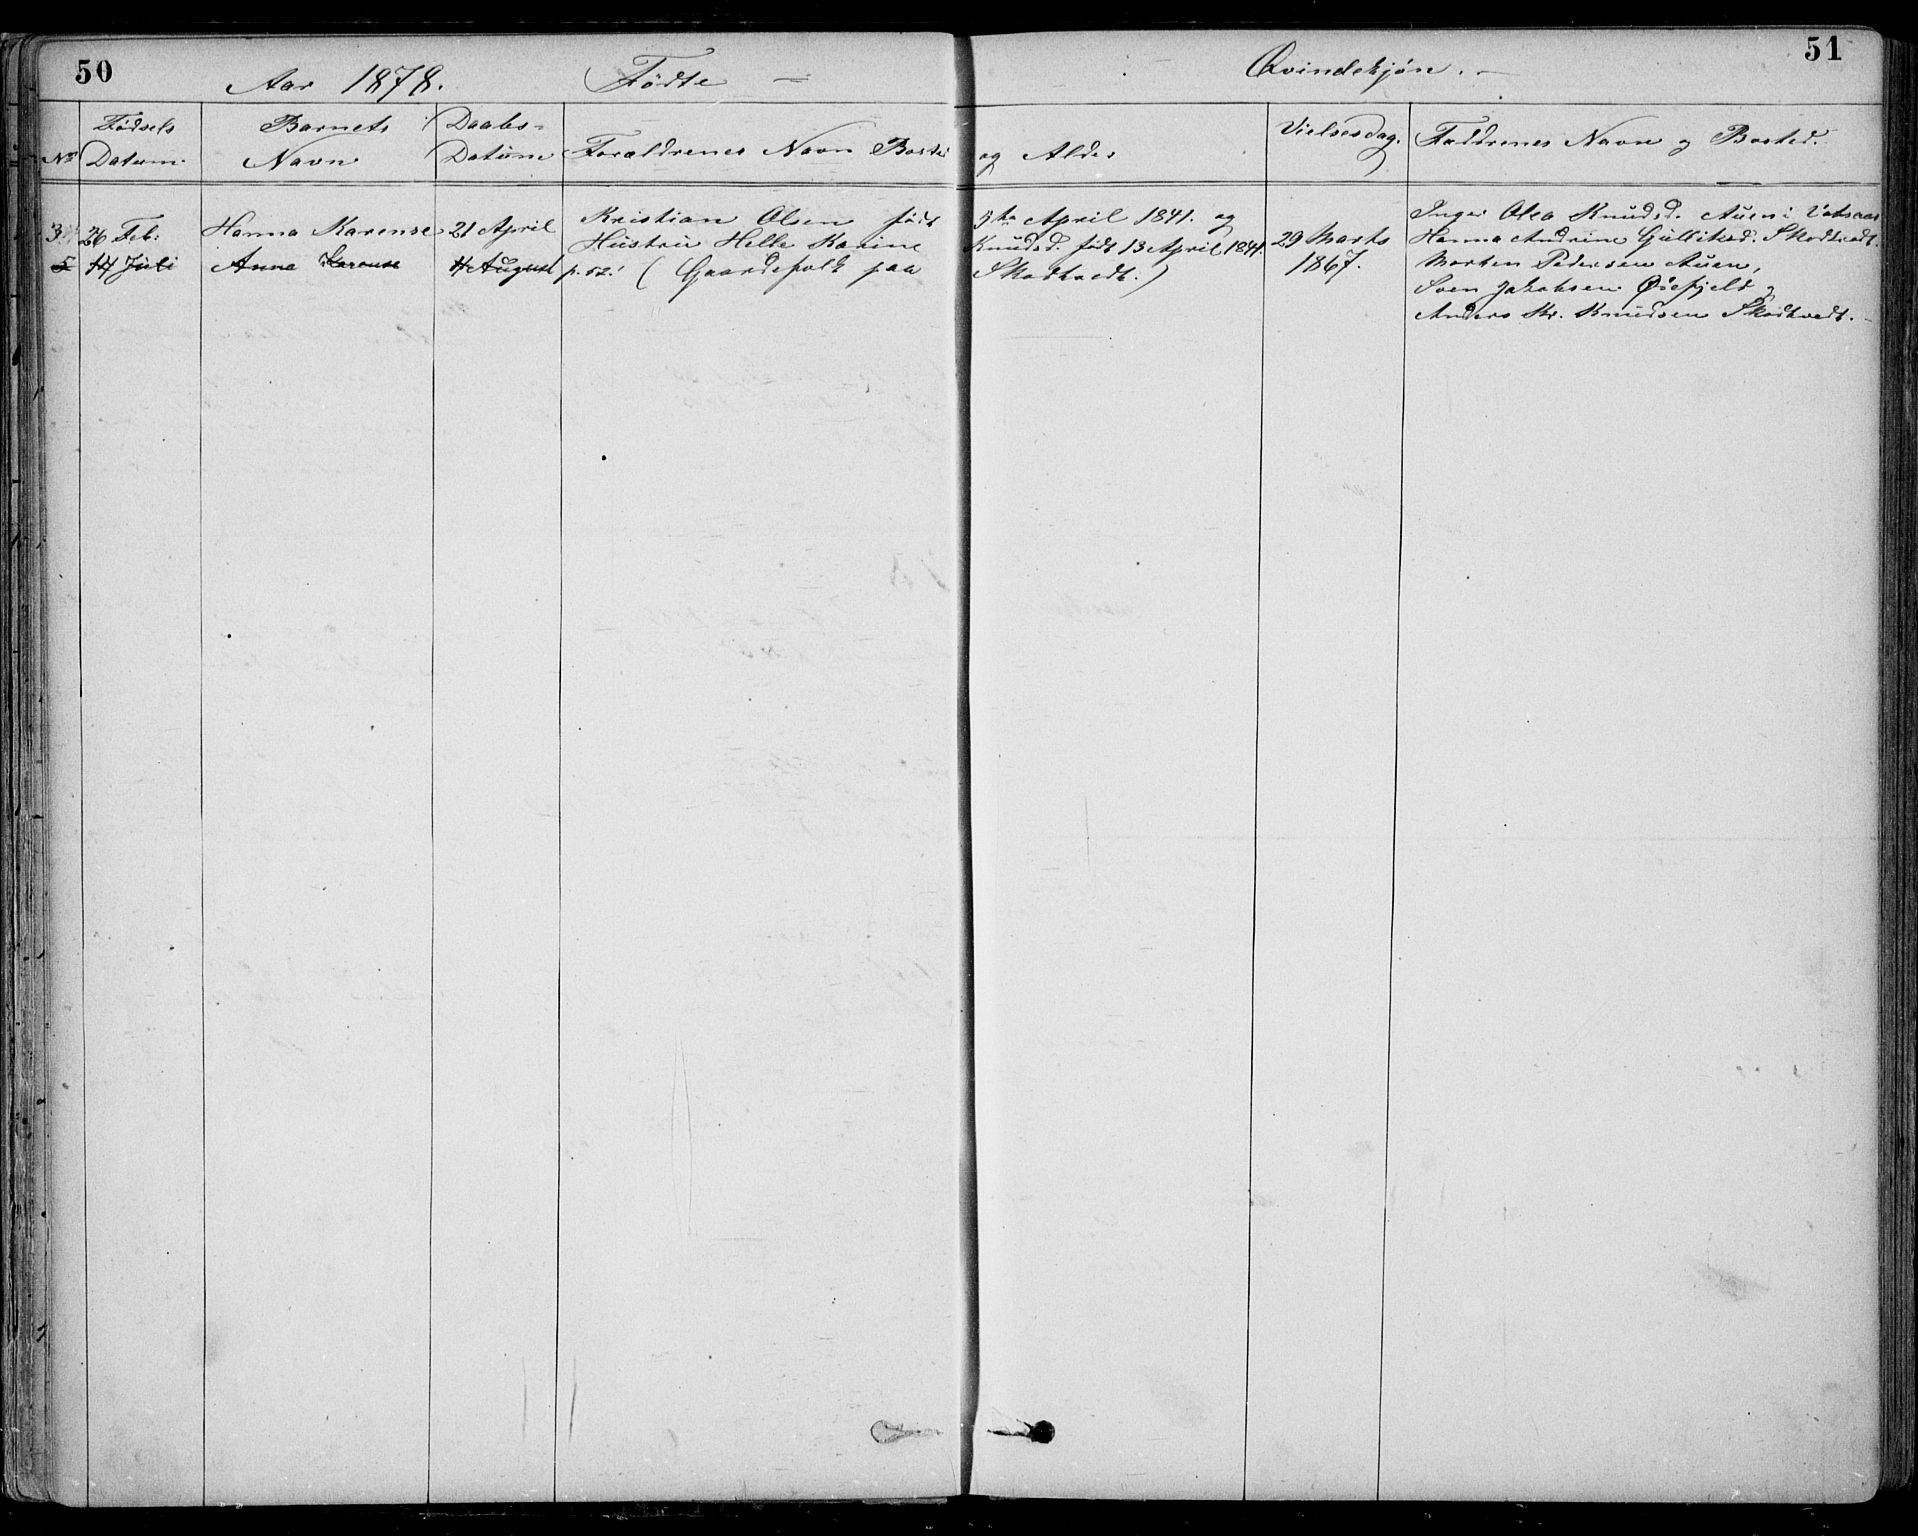 50
Aar 1878. Födte —
Qvindekjön. —
51
No
Födsels Datum.
Barnets Navn
Daabs- Datum
Foraldrenes Navn Bosted og Alder
Vielsesdag.
Faddrenes Navn og Bosted.
3. 26 Feb: Hanna Karense 21 April
Kristian Olsen födt 5te April 1841. og
Hustru Helle Karine Knudsd. födt 13 April 1844.
( Gaardsfolk paa Skodtvedt. )
29 Marts
1867.
Inger Olea Knudsd. Auen i
Hanna Andrine Gulliksd. Skodtvedt.
Morten Pedersen Auen,
Sven Jakobsen Öiefjeld og
Anders Kr. Knudsen Skodtvedt. —
5 14 Juli Anna Karense 4 August p. 52.